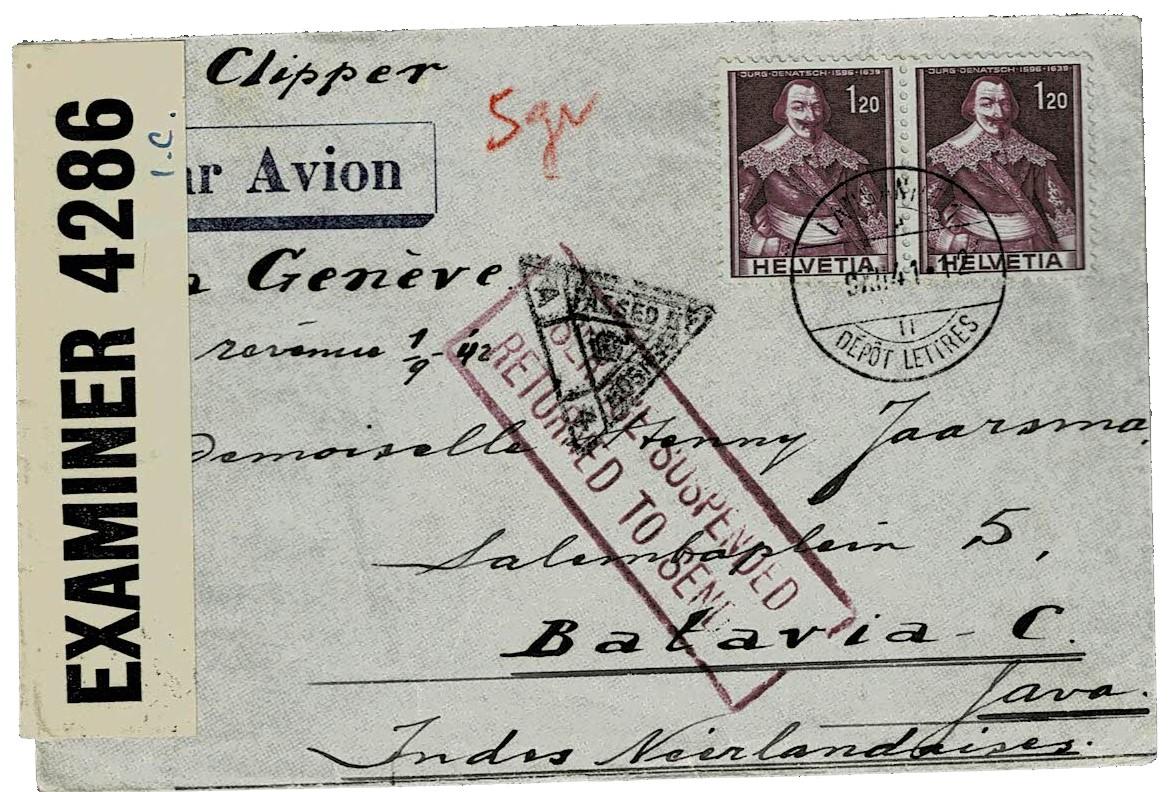 Clipper
5 gr
ar Avion
Genève
revenue 1/9-42
demoiselle Henny Jaarsma,
Salembaplein 5,
Batavia-C.
Java.
Indes Néerlandaises.
EXAMINER 4286
I.C.
JURG·JENATSCH·1596·1639
120
HELVETIA
JURG·JENATSCH·1596·1639
120
HELVETIA
II
DÉPÔT LETTRES
PASSED BY
SUSPENDED
RETURNED TO SENDE